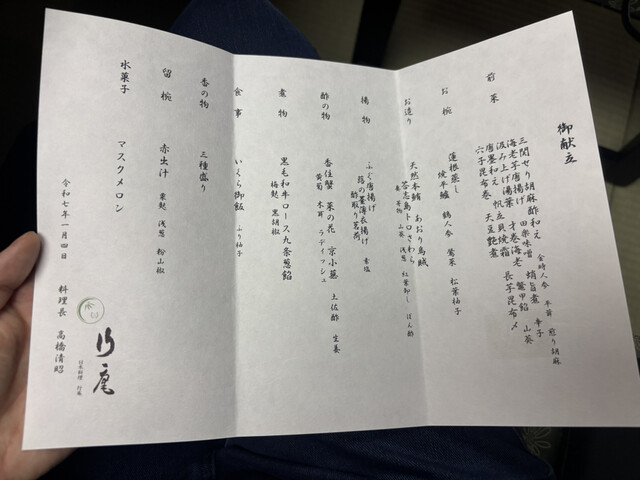 御献立
前菜
三関せり胡麻酢和え 金時人参 木耳 煎り胡麻
海老芋唐揚げ 田楽味噌 蛸旨煮 辛子
汲み上げ湯葉 才巻海老 鼈甲餡 山葵
唐墨和え 帆立貝焼霜 長芋昆布〆
穴子昆布巻 天豆艶煮
お椀
蓮根蒸し
焼平鱸 鶴人参 鶯菜 松葉柚子
お造り
天然本鮪 あおり烏賊
答志島トロさわら
妻 芽物 山葵 浅葱 紅葉卸し ぽん酢
揚物
ふぐ唐揚げ
蕗の薹薄衣揚げ 素塩
酢取り茗荷
酢の物
香住蟹 菜の花 京小蕪 土佐酢 生姜
黄菊 木耳 ラディッシュ
煮物
黒毛和牛ロース九条葱餡
梅麩 黒胡椒
食事
いくら御飯 ふり柚子
香の物
三種盛り
留椀
赤出汁 粟麩 浅葱 粉山椒
水菓子
マスクメロン
令和七年一月四日
料理長 高橋清昭
日本料理 行庵